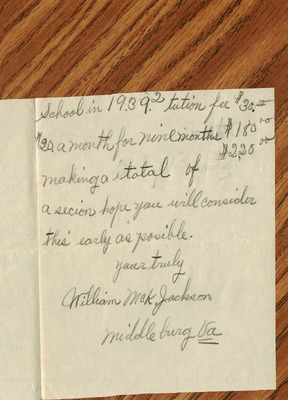 School in 1939.² tution fee $30.00
$20. a month for nine months $180.00
making a total of $2,20.00
a secion hope you will consider
this early as posible.
your truly
William McK. Jackson
Middleburg Va